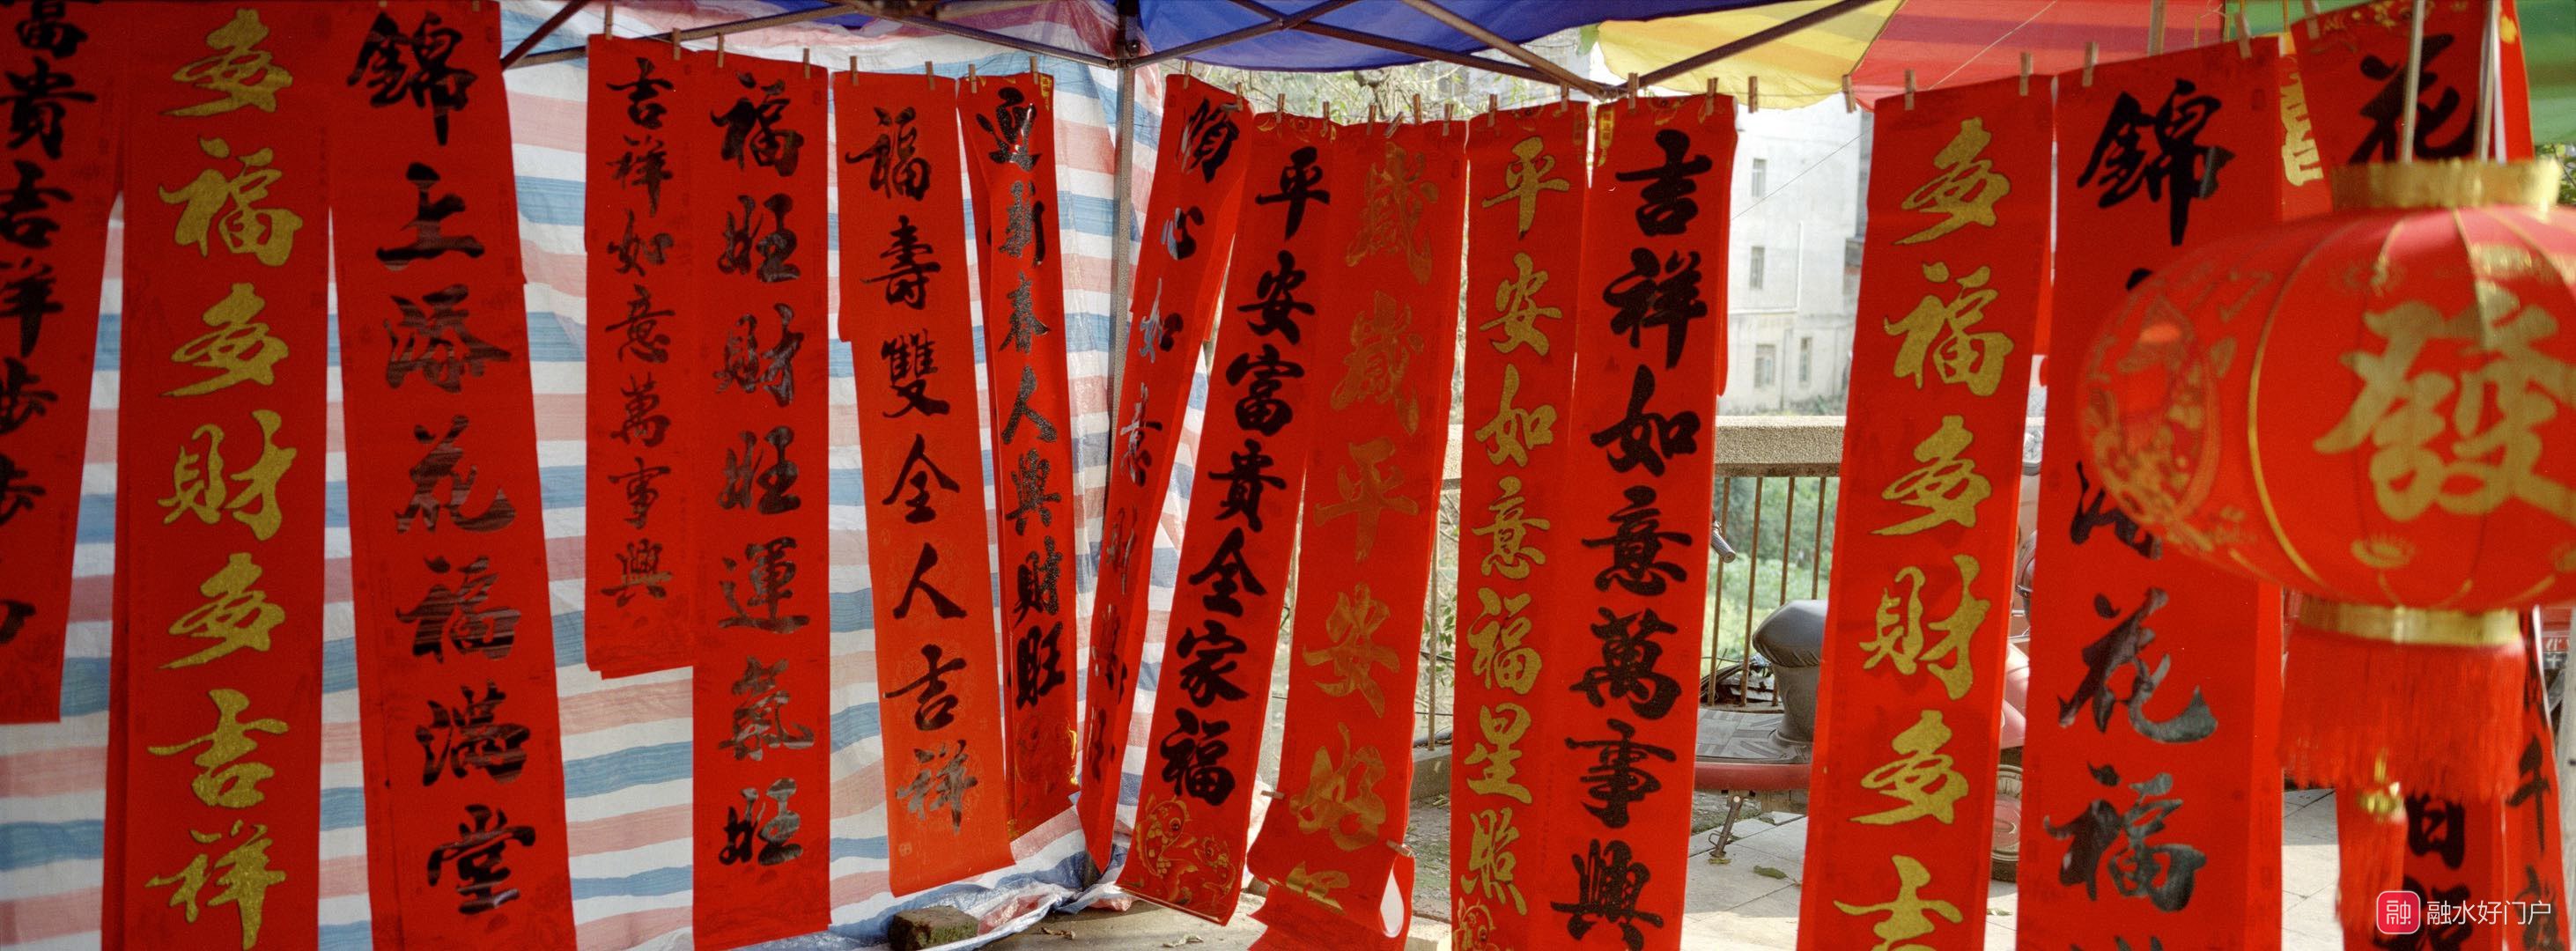 富貴吉祥步步
多福多財多吉祥
錦上添花福滿堂
吉祥如意萬事興
福旺財旺運氣旺
福壽雙全人吉祥
迎新春人興財旺
順心如意
平安富貴全家福
歲歲平安好年
平安如意福星照
吉祥如意萬事興
多福多財多吉
錦添花福
花
發
日旺
千
融 融水好门户